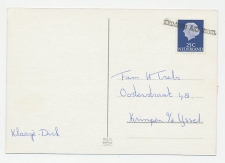 25c
NEDERLAND
Fam H Trets
Oosterstraat 48
Krimpen a/d IJssel
Klaasje-Dick